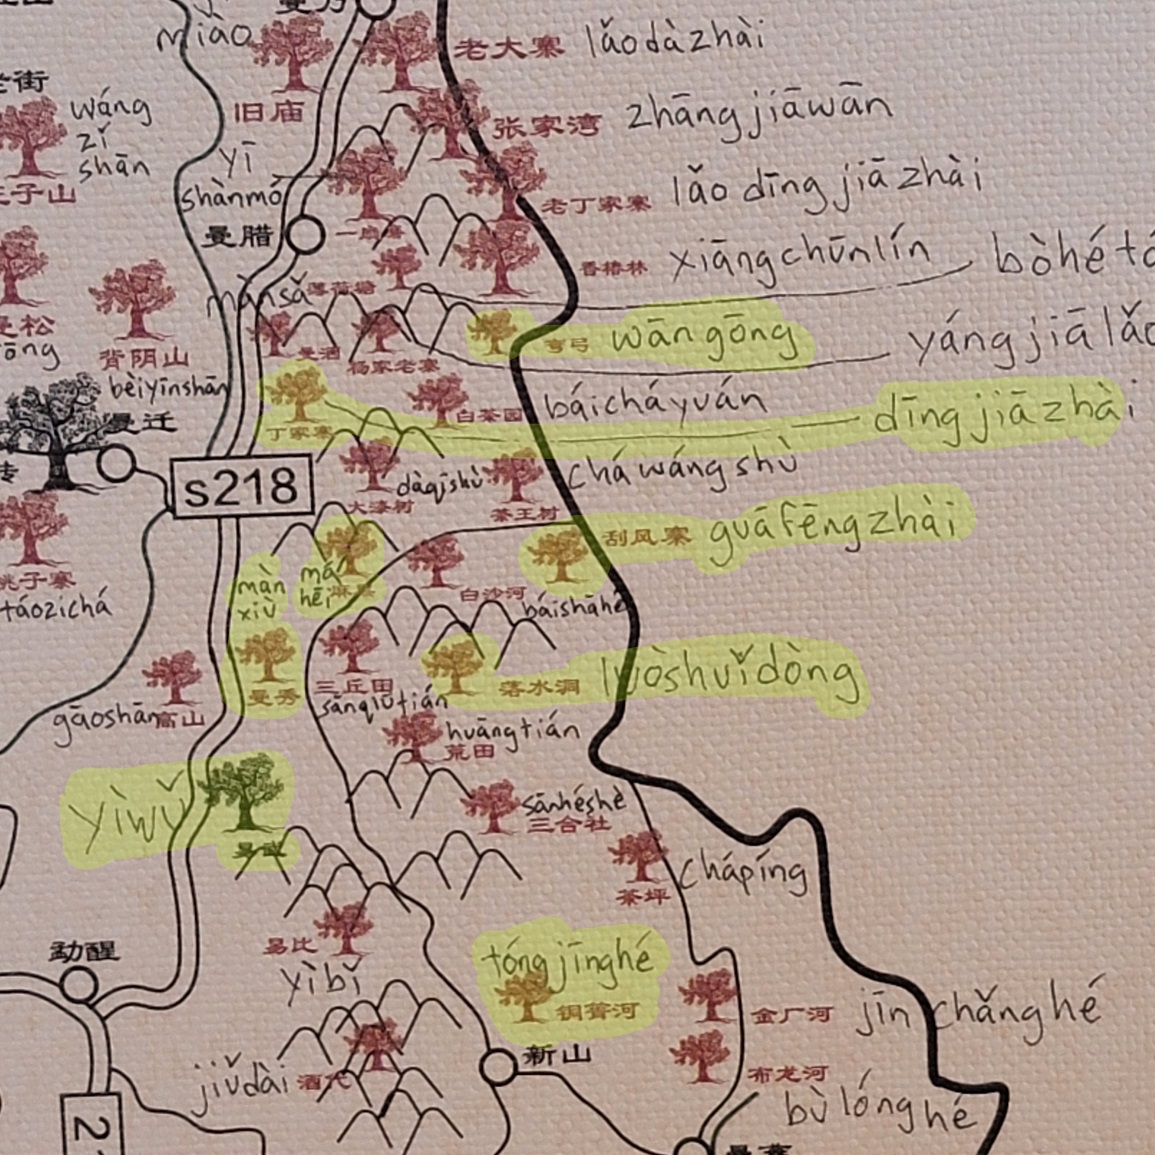 miào
老大寨 lǎodàzhài
旧庙
wáng
zǐ
shān
张家湾 zhāngjiāwān
yī
shànmó
老丁家寨 lǎo dīng jiā zhài
曼腊
香椿林 xiāngchūnlín
bòhé
mànsǎ
薄荷塘
弯弓 wāngōng
背阴山
曼洒
杨家老寨
yáng jiā
bèiyīnshān
白茶园 báicháyuán
dīng jiā zhài
丁家寨
曼迁
s218
dàqīshù
大漆树
茶王树 chá wáng shù
刮风寨 guāfēngzhài
màn
xiù
má
hēi
麻黑
白沙河
báishāhé
táozichá
曼秀
三丘田
sānqiūtián
落水洞 luòshuǐdòng
gāoshān 高山
huāngtián
荒田
yìwǔ
易武
sānhéshè
三合社
茶坪 chápíng
易比
yìbǐ
勐醒
tóngjīnghé
铜箐河
金厂河 jīn chǎng hé
新山
jiǔdài
布龙河
bù lóng hé